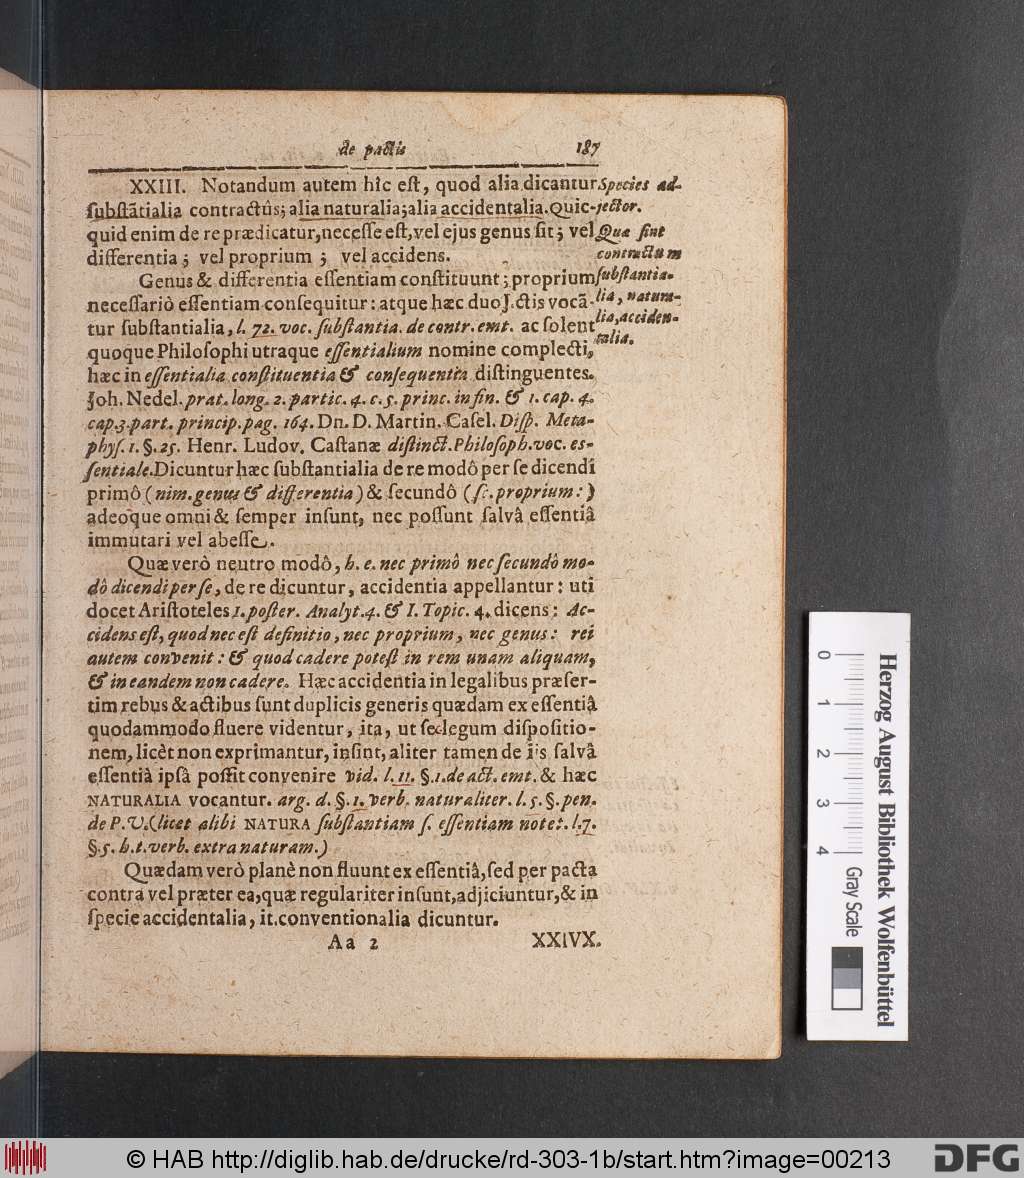 de pactis 187
XXIII. Notandum autem hîc eſt, quod alia dicantur
ſubſtãtialia contractûs; alia naturalia; alia accidentalia. Quic-
quid enim de re prædicatur, neceſſe eſt, vel ejus genus ſit; vel
differentia; vel proprium; vel accidens.
Species ad-
jector.
Quæ ſint
contractum
ſubſtantia-
lia, natura-
lia, acciden-
talia.
Genus & differentia eſſentiam conſtituunt; proprium
neceſſariò eſſentiam conſequitur: atque hæc duo J. ctis vocã-
tur ſubſtantialia, l. 72. voc. ſubſtantia. de contr. emt. ac ſolent
quoque Philoſophi utraque eſſentialium nomine complecti,
hæc in eſſentialia conſtituentia & conſequentia diſtinguentes.
Joh. Nedel. prat. long. 2. partic. 4. c. 5. princ. in fin. & 1. cap. 4.
cap. 3. part. princip. pag. 164. Dn. D. Martin. Caſel. Diſp. Meta-
phyſ. 1. §. 25. Henr. Ludov. Caſtanæ diſtinct. Philoſoph. voc. eſ-
ſentiale. Dicuntur hæc ſubſtantialia de re modô per ſe dicendi
primô (nim. genus & differentia) & ſecundô (ſc. proprium:)
adeoque omni & ſemper inſunt, nec poſſunt ſalvâ eſſentiâ
immutari vel abeſſe.
Quæ verò neutro modô, h. e. nec primô nec ſecundô mo-
dô dicendi per ſe, de re dicuntur, accidentia appellantur: uti
docet Ariſtoteles 1. poſter. Analyt. 4. & I. Topic. 4. dicens: Ac-
cidens eſt, quod nec eſt definitio, nec proprium, nec genus: rei
autem convenit: & quod cadere poteſt in rem unam aliquam,
& in eandem non cadere. Hæc accidentia in legalibus præſer-
tim rebus & actibus ſunt duplicis generis quædam ex eſſentiâ
quodammodo fluere videntur, ita, ut ſec legum diſpoſitio-
nem, licèt non exprimantur, inſint, aliter tamen de iis ſalvâ
eſſentiâ ipſâ poſſit convenire vid. l. 11. §. 1. de act. emt. & hæc
NATURALIA vocantur. arg. d. §. 1. verb. naturaliter. l. 5. §. pen.
de P. V. (licet alibi NATURA ſubſtantiam ſ. eſſentiam notet. l. 7.
§. 5. h. t. verb. extra naturam.)
Quædam verò planè non fluunt ex eſſentiâ, ſed per pacta
contra vel præter ea, quæ regulariter inſunt, adjiciuntur, & in
ſpecie accidentalia, it. conventionalia dicuntur.
Aa 2 XXIVX.
0 1 2 3 4
Herzog August Bibliothek Wolfenbüttel
Gray Scale
© HAB http://diglib.hab.de/drucke/rd-303-1b/start.htm?image=00213
DFG